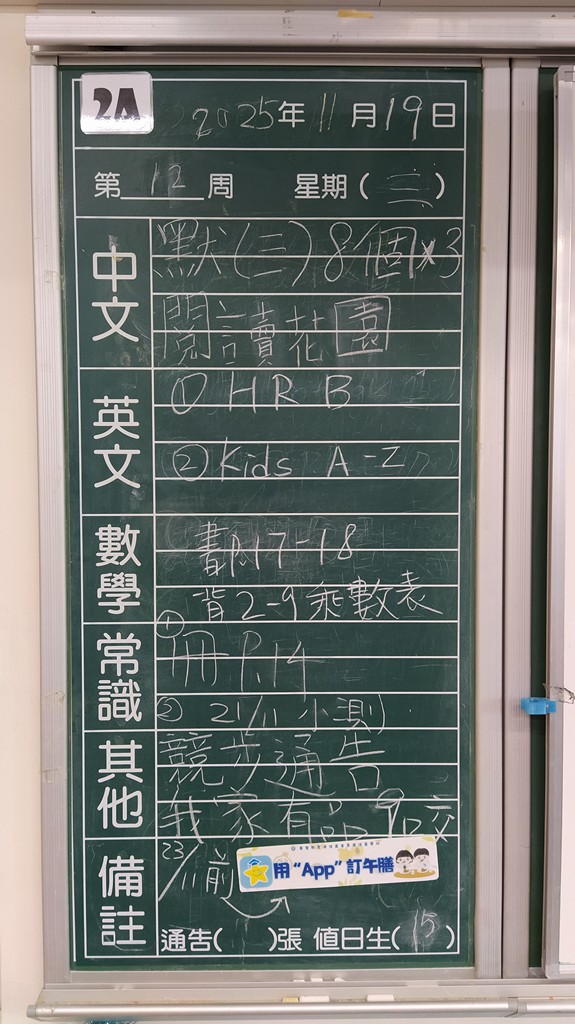 2A
2025年11月19日
第12周 星期(三)
中文
默(三)8個×3
閱讀花園
英文
① HRB
② Kids A-Z
數學
書P.17-18
背2-9乘數表
常識
① 冊 P.14
② 21/11 小測
其他
競步通告
我家有品
備註
23/11前
用“App”訂午膳
通告( )張 值日生(15)